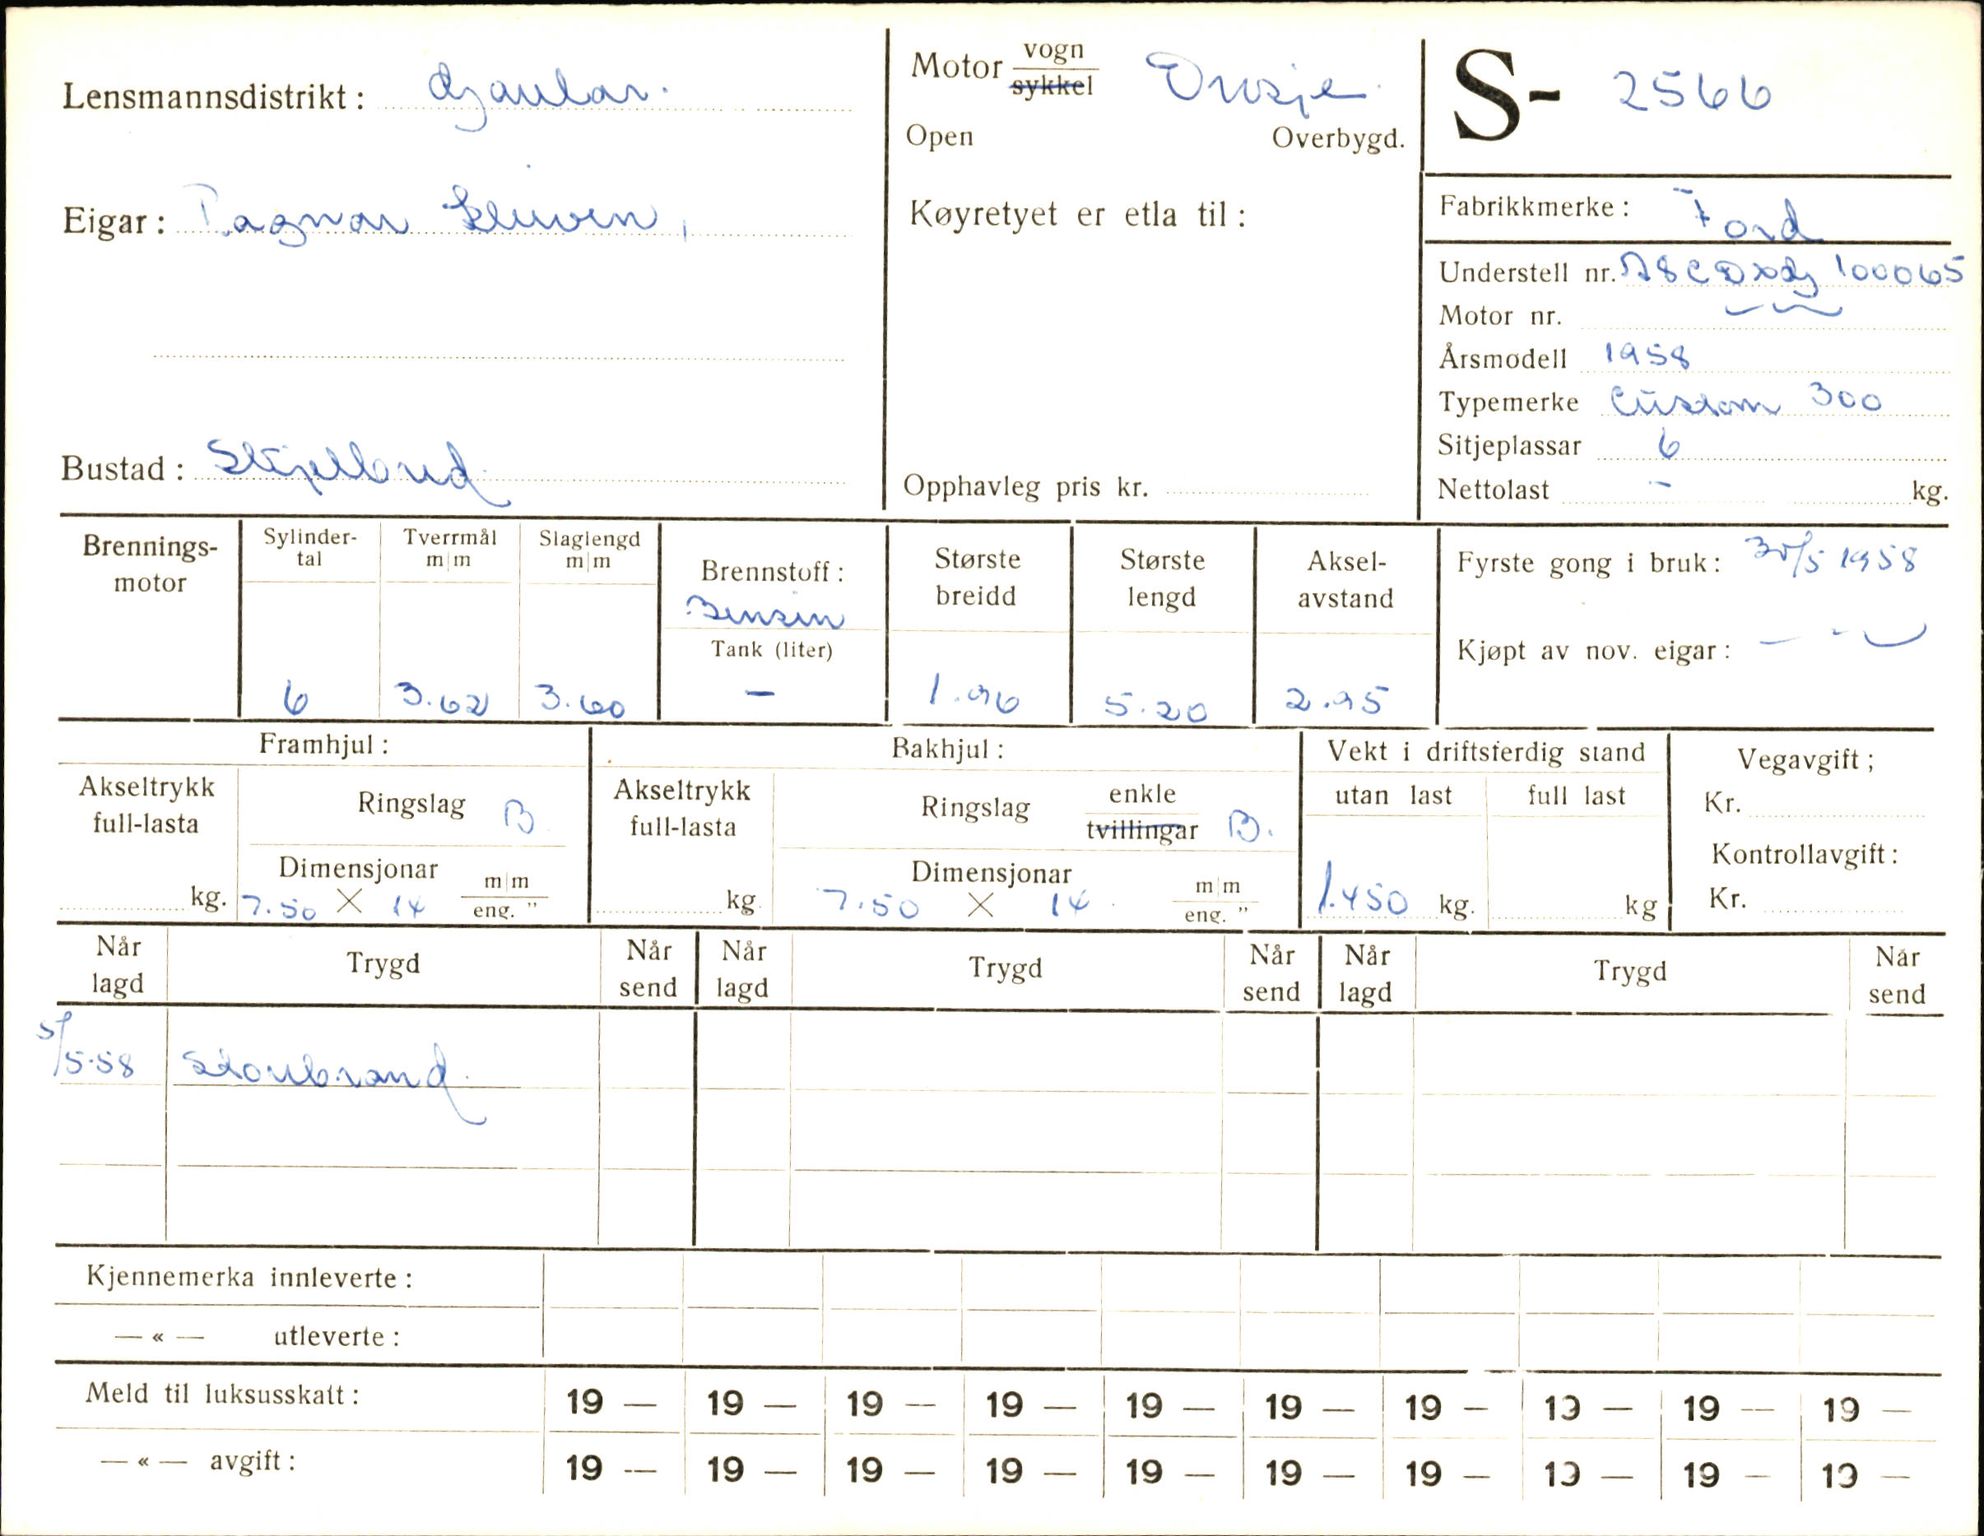 Lensmannsdistrikt: Gaular.
Motor vogn
sykkel
Drosje
Open Overbygd.
S- 2566
Eigar: Ragnar Kleiven,
Køyretyet er etla til:
Fabrikkmerke: Ford
Understell nr. 100065
Motor nr. — " —
Årsmodell 1958
Typemerke Custom 300
Sitjeplassar 6
Bustad: Skjelbreid
Opphavleg pris kr.
Nettolast - kg.
Brennings-
motor
Sylinder-
tal
6
Tverrmål
m|m
3.62
Slaglengd
m|m
3.60
Brennstoff:
Bensin
Tank (liter)
—
Største
breidd
1.96
Største
lengd
5.20
Aksel-
avstand
2.95
Fyrste gong i bruk: /5 1958
Kjøpt av nov. eigar: — " —
Framhjul: Bakhjul: Vekt i driftsferdig stand Vegavgift;
Akseltrykk
full-lasta
kg.
Ringslag B
Dimensjonar
7.50 × 14 m|m
eng. "
Akseltrykk
full-lasta
kg
Ringslag enkle
tvillingar B.
Dimensjonar
7.50 × 14 m|m
eng. "
utan last
1.450 kg.
full last
kg
Kr.
Kontrollavgift:
Kr.
Når
lagd
Trygd
Når
send
Når
lagd
Trygd
Når
send
Når
lagd
Trygd
Når
send
5/5-58 Storebrand
Kjennemerka innleverte:
— « — utleverte:
Meld til luksusskatt: 19 — 19 — 19 — 19 — 19 — 19 — 19 — 19 — 19 — 19 —
— « — avgift: 19 — 19 — 19 — 19 — 19 — 19 — 19 — 19 — 19 — 19 —